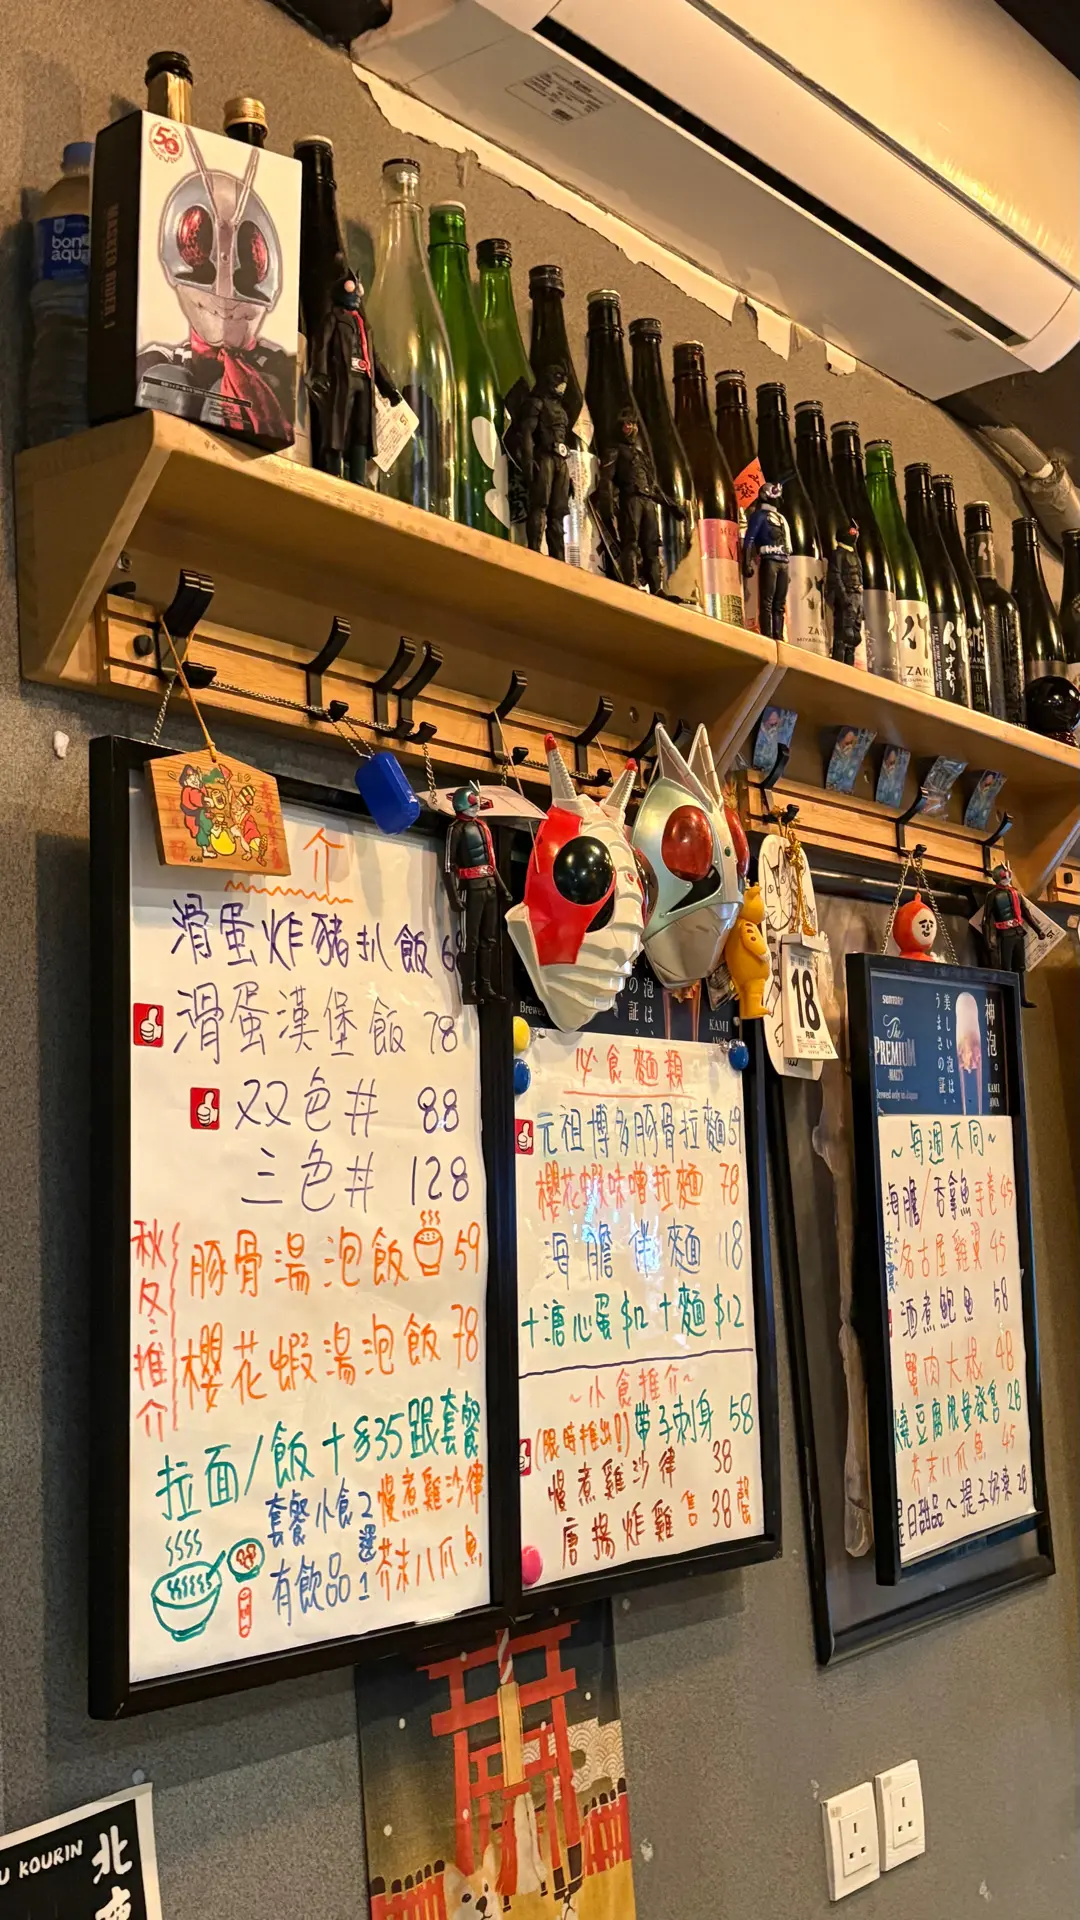 50
MASKED RIDER 1
bon
aqua
介
滑蛋炸豬扒飯 68
滑蛋漢堡飯 78
双色丼 88
三色丼 128
秋冬推介
豚骨湯泡飯 59
櫻花蝦湯泡飯 78
拉面/飯+$35跟套餐
套餐小食2選1
有飲品
慢煮雞沙律
芥末八爪魚
必食麵類
元祖博多豚骨拉麵 59
櫻花蝦味噌拉麵 78
海膽伴麵 118
+溏心蛋 $12 +麵 $12
~小食推介~
(限時推出!!)帶子刺身 58
慢煮雞沙律 38
唐揚炸雞 38
售罄
18
SUNTORY
The
PREMIUM
MALT'S
Brewed only in Japan
神泡。
美しい泡は、
うまさの証。
KAMI
AWA
~每週不同~
海膽/吞拿魚手卷 45
名古屋雞翼 45
酒煮鮑魚 58
蟹肉大根 48
燒豆腐限量發售 28
芥末八爪魚 45
是日甜品~提子奶凍 28
ZAKU
ZAKU
作
中取り
U KOURIN
北